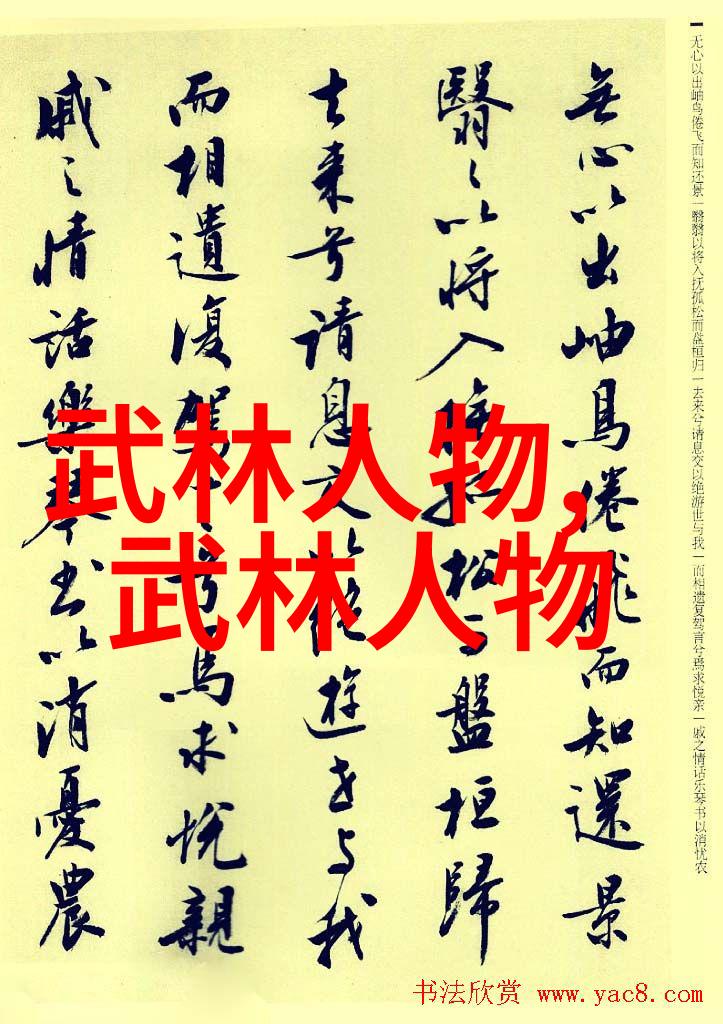 无心以出岫鸟倦飞而知还景一翳翳以将入抚孤松而盘桓归一去来兮请息交以绝游世与我一而相遗复驾言兮焉求悦亲一戚之情话乐琴书以消忧农
無心以出岫鳥倦飛而知還景
翳々以将入撫孤松而盤桓歸
去来兮请息交以绝遊世与我
而相遺復駕言兮焉求悦親
戚之情話樂琴书以消憂農
武林人物,
武林人物
书法欣赏 www.yac8.com